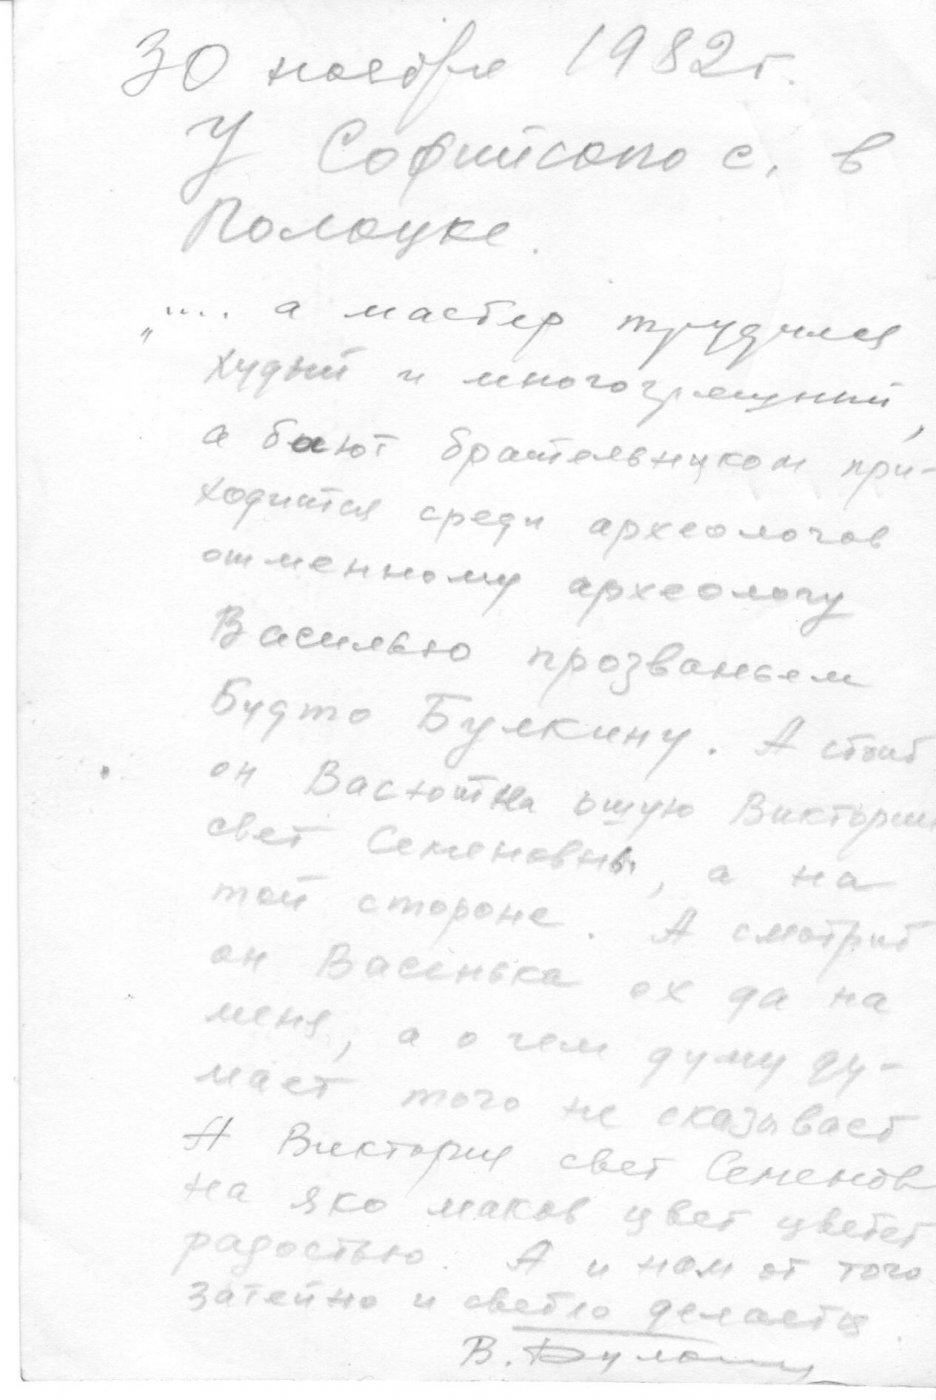 30 ноября 1982 г.
У Софийского с. в
Полоцке.
„.... а мастер трудился
худый и многогрешный,
а бают брательником при-
ходится среди археологов
отменному археологу
Василью прозваньем
Будто Булкину. А стоит
он Васютка ошую Виктории
свет Семеновны, а на
той стороне. А смотрит
он Васенька ох да на
меня, а о чем думу ду-
мает того не сказывает
А Виктория свет Семенов
на яко маков цвет цветет
радостью. А и нам от того
затейно и светло делается.
В.